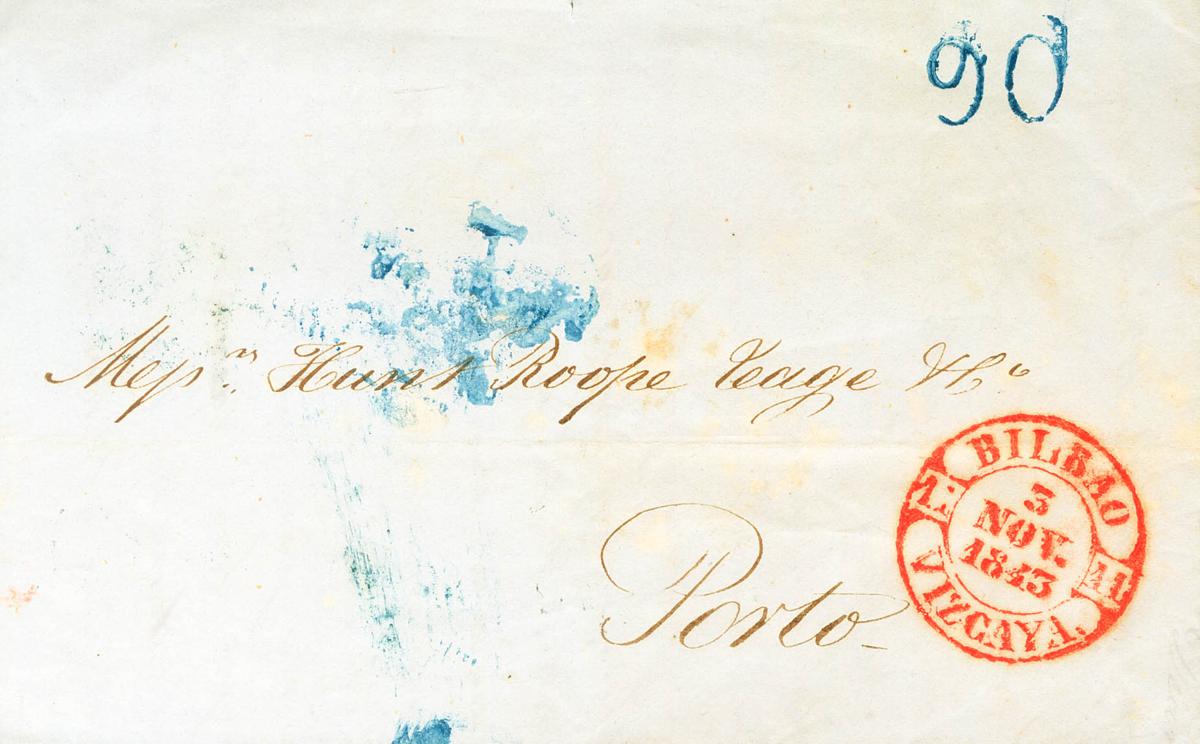 90
Messrs. Hunt Roope Teage & Co
Porto
BILBAO
3
NOV.
1843
VIZCAYA.